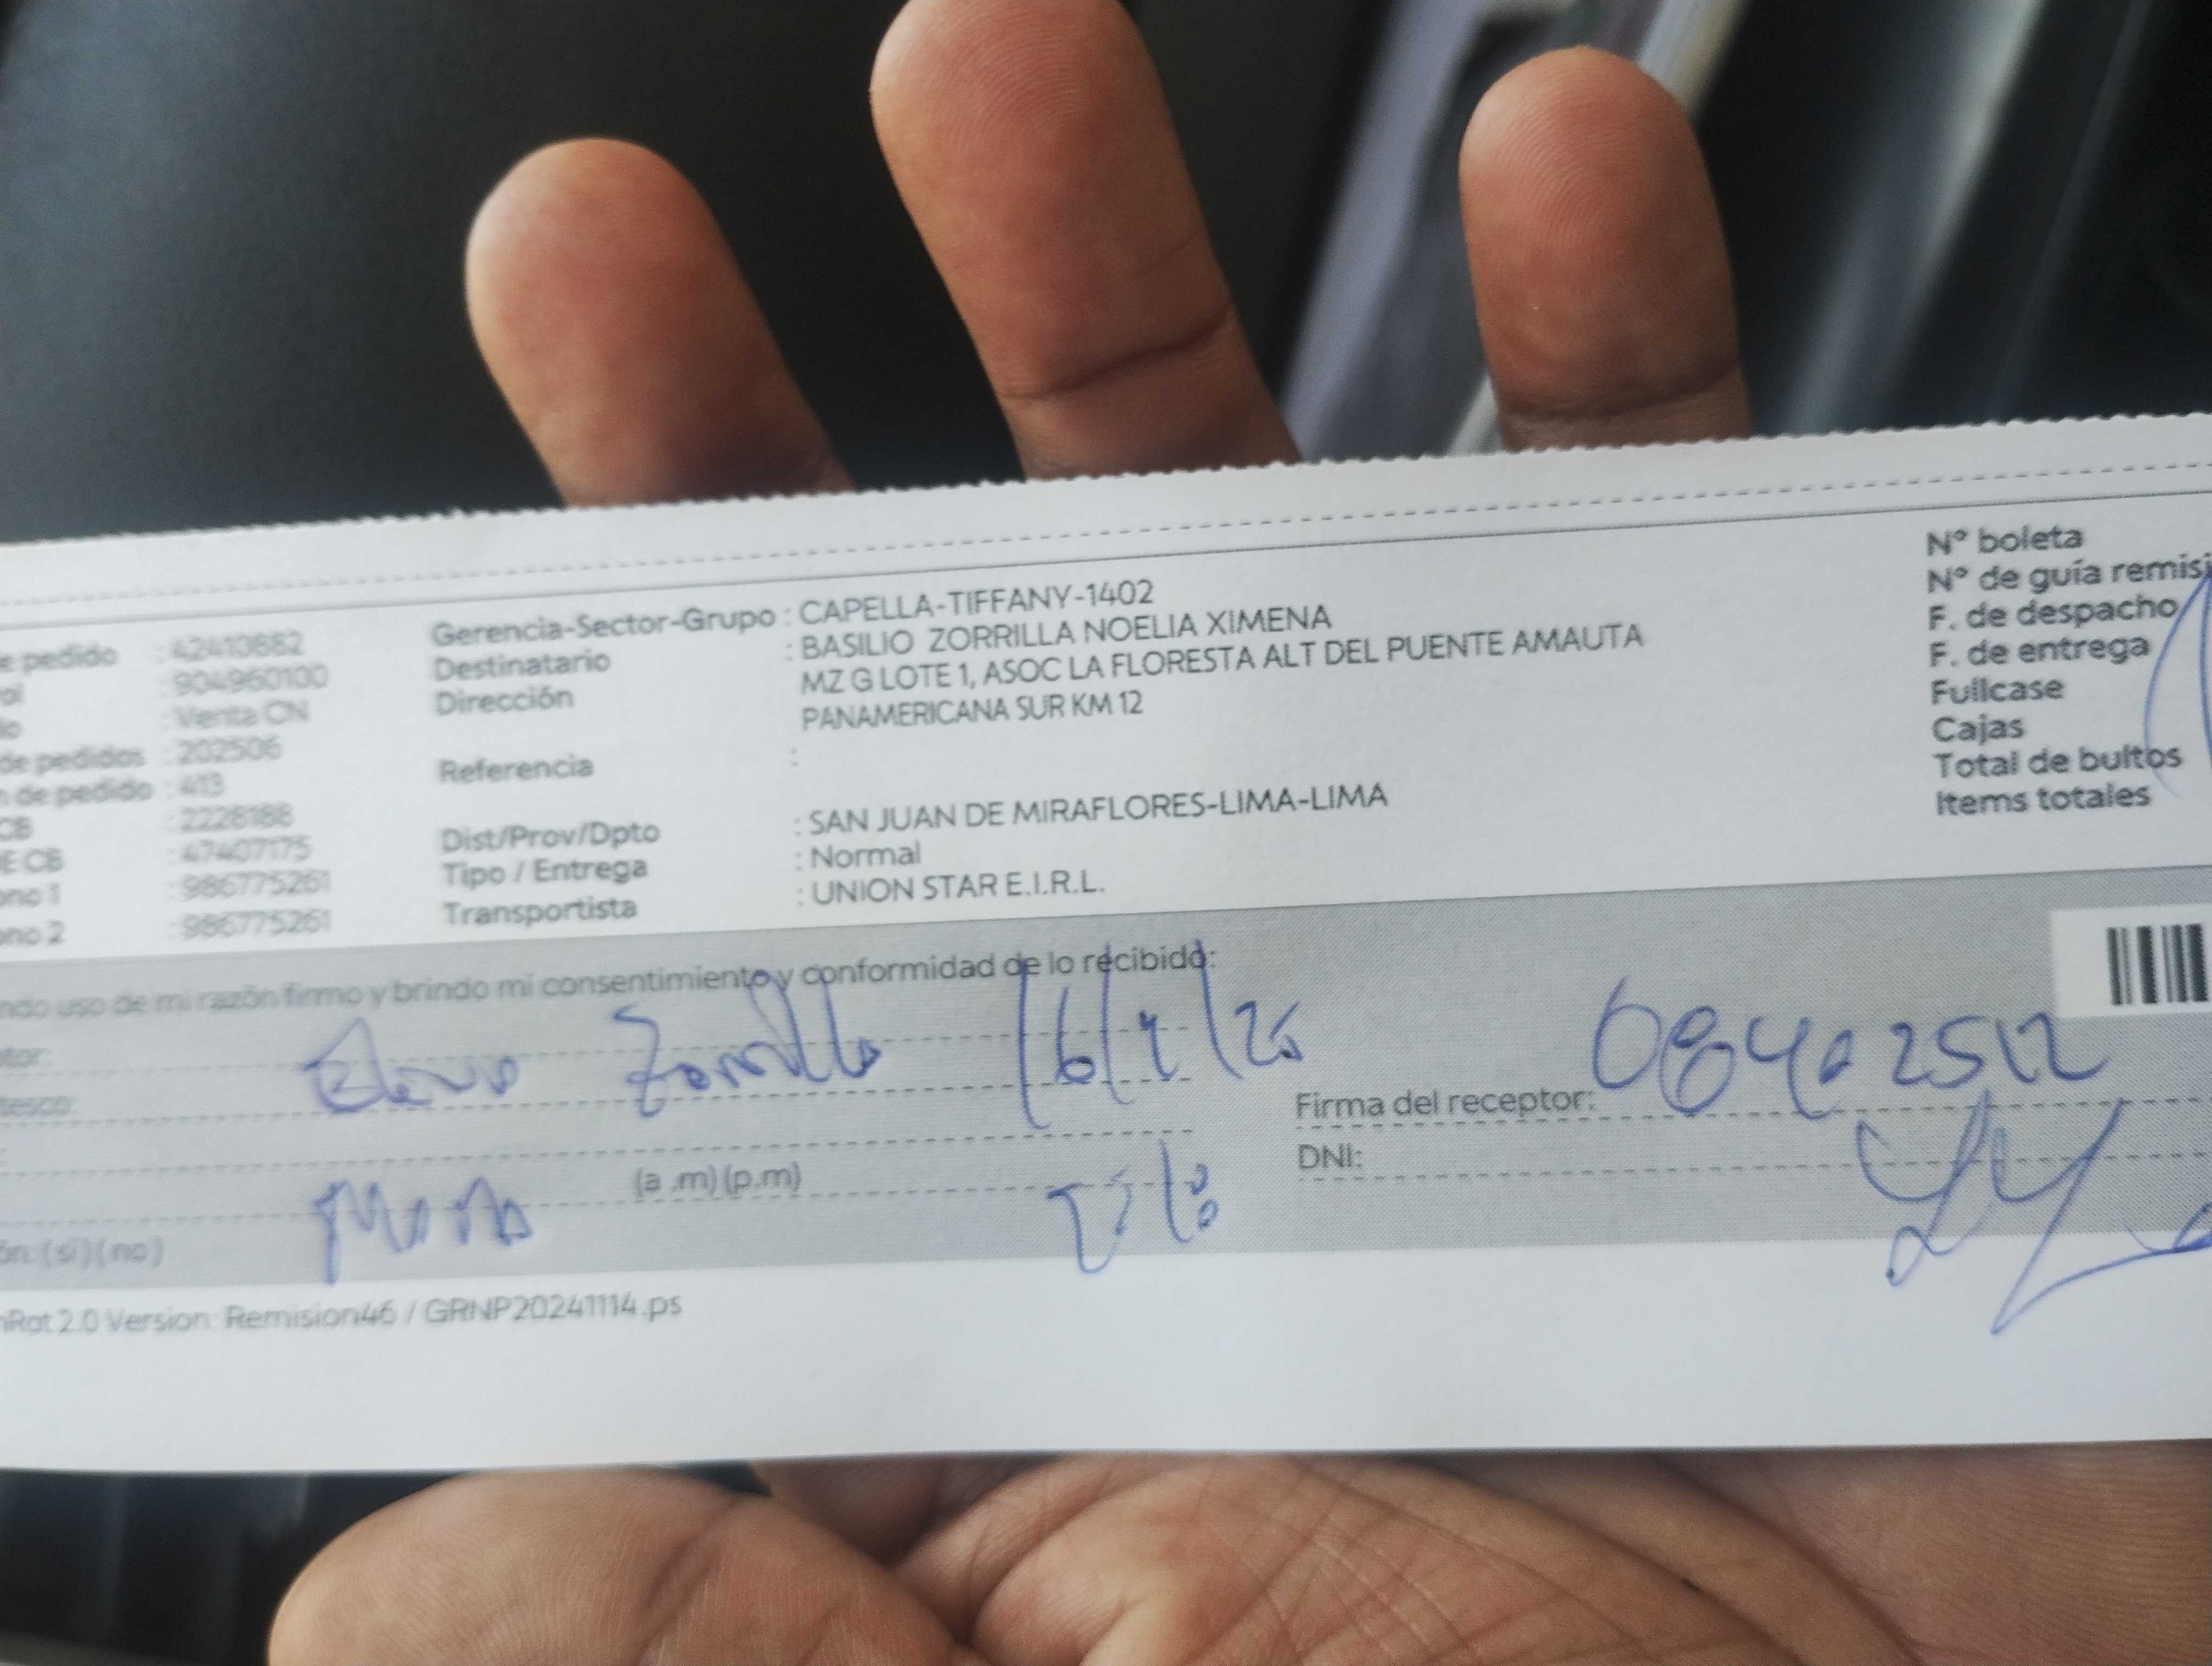 e pedido : 42410882 Gerencia-Sector-Grupo : CAPELLA-TIFFANY-1402 N° boleta
ol : 904960100 Destinatario : BASILIO ZORRILLA NOELIA XIMENA N° de guía remisi
lo : Venta CN Dirección : MZ G LOTE 1, ASOC LA FLORESTA ALT DEL PUENTE AMAUTA F. de despacho
de pedidos : 202506 PANAMERICANA SUR KM 12 F. de entrega
n de pedido : 413 Referencia : Fullcase
CB : 2228188 Cajas
E CB : 47407175 Dist/Prov/Dpto : SAN JUAN DE MIRAFLORES-LIMA-LIMA Total de bultos
ono 1 : 986775261 Tipo / Entrega : Normal Items totales
ono 2 : 986775261 Transportista : UNION STAR E.I.R.L.
ndo uso de mi razón firmo y brindo mi consentimiento y conformidad de lo recibido:
tor: Zorrilla
tesco: Firma del receptor:
: (a .m) (p.m) DNI:
ón: (si) (no)
nRot 2.0 Version: Remision46 / GRNP20241114.ps